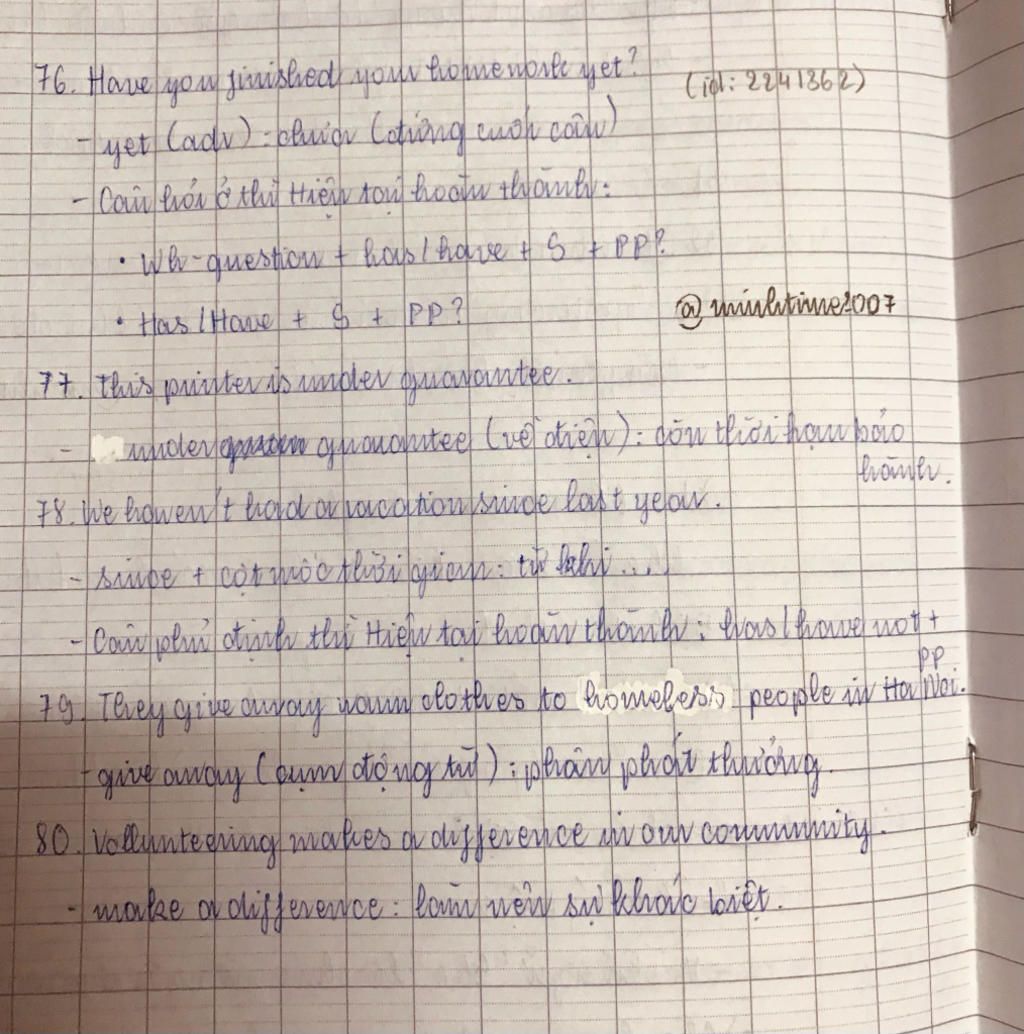 76. Have you finished your homework yet? (id: 2241362)
- yet (adv): chưa (đứng cuối câu)
- Câu hỏi ở thì Hiện tại hoàn thành:
• Wh-question + has/have + S + PP?
• Has/Have + S + PP? @minhtime2007
77. This printer is under guarantee.
- under guarantee (về điện): còn thời hạn bảo
hành.
78. We haven't had a vacation since last year.
- since + cột mốc thời gian: từ khi...
- Câu phủ định thì Hiện tại hoàn thành: has/have not +
PP
79. They give away warm clothes to homeless people in Ha Noi.
- give away (cụm động từ): phân phát thưởng.
80. Vollunteering makes a difference in our community.
- make a difference: làm nên sự khác biệt.